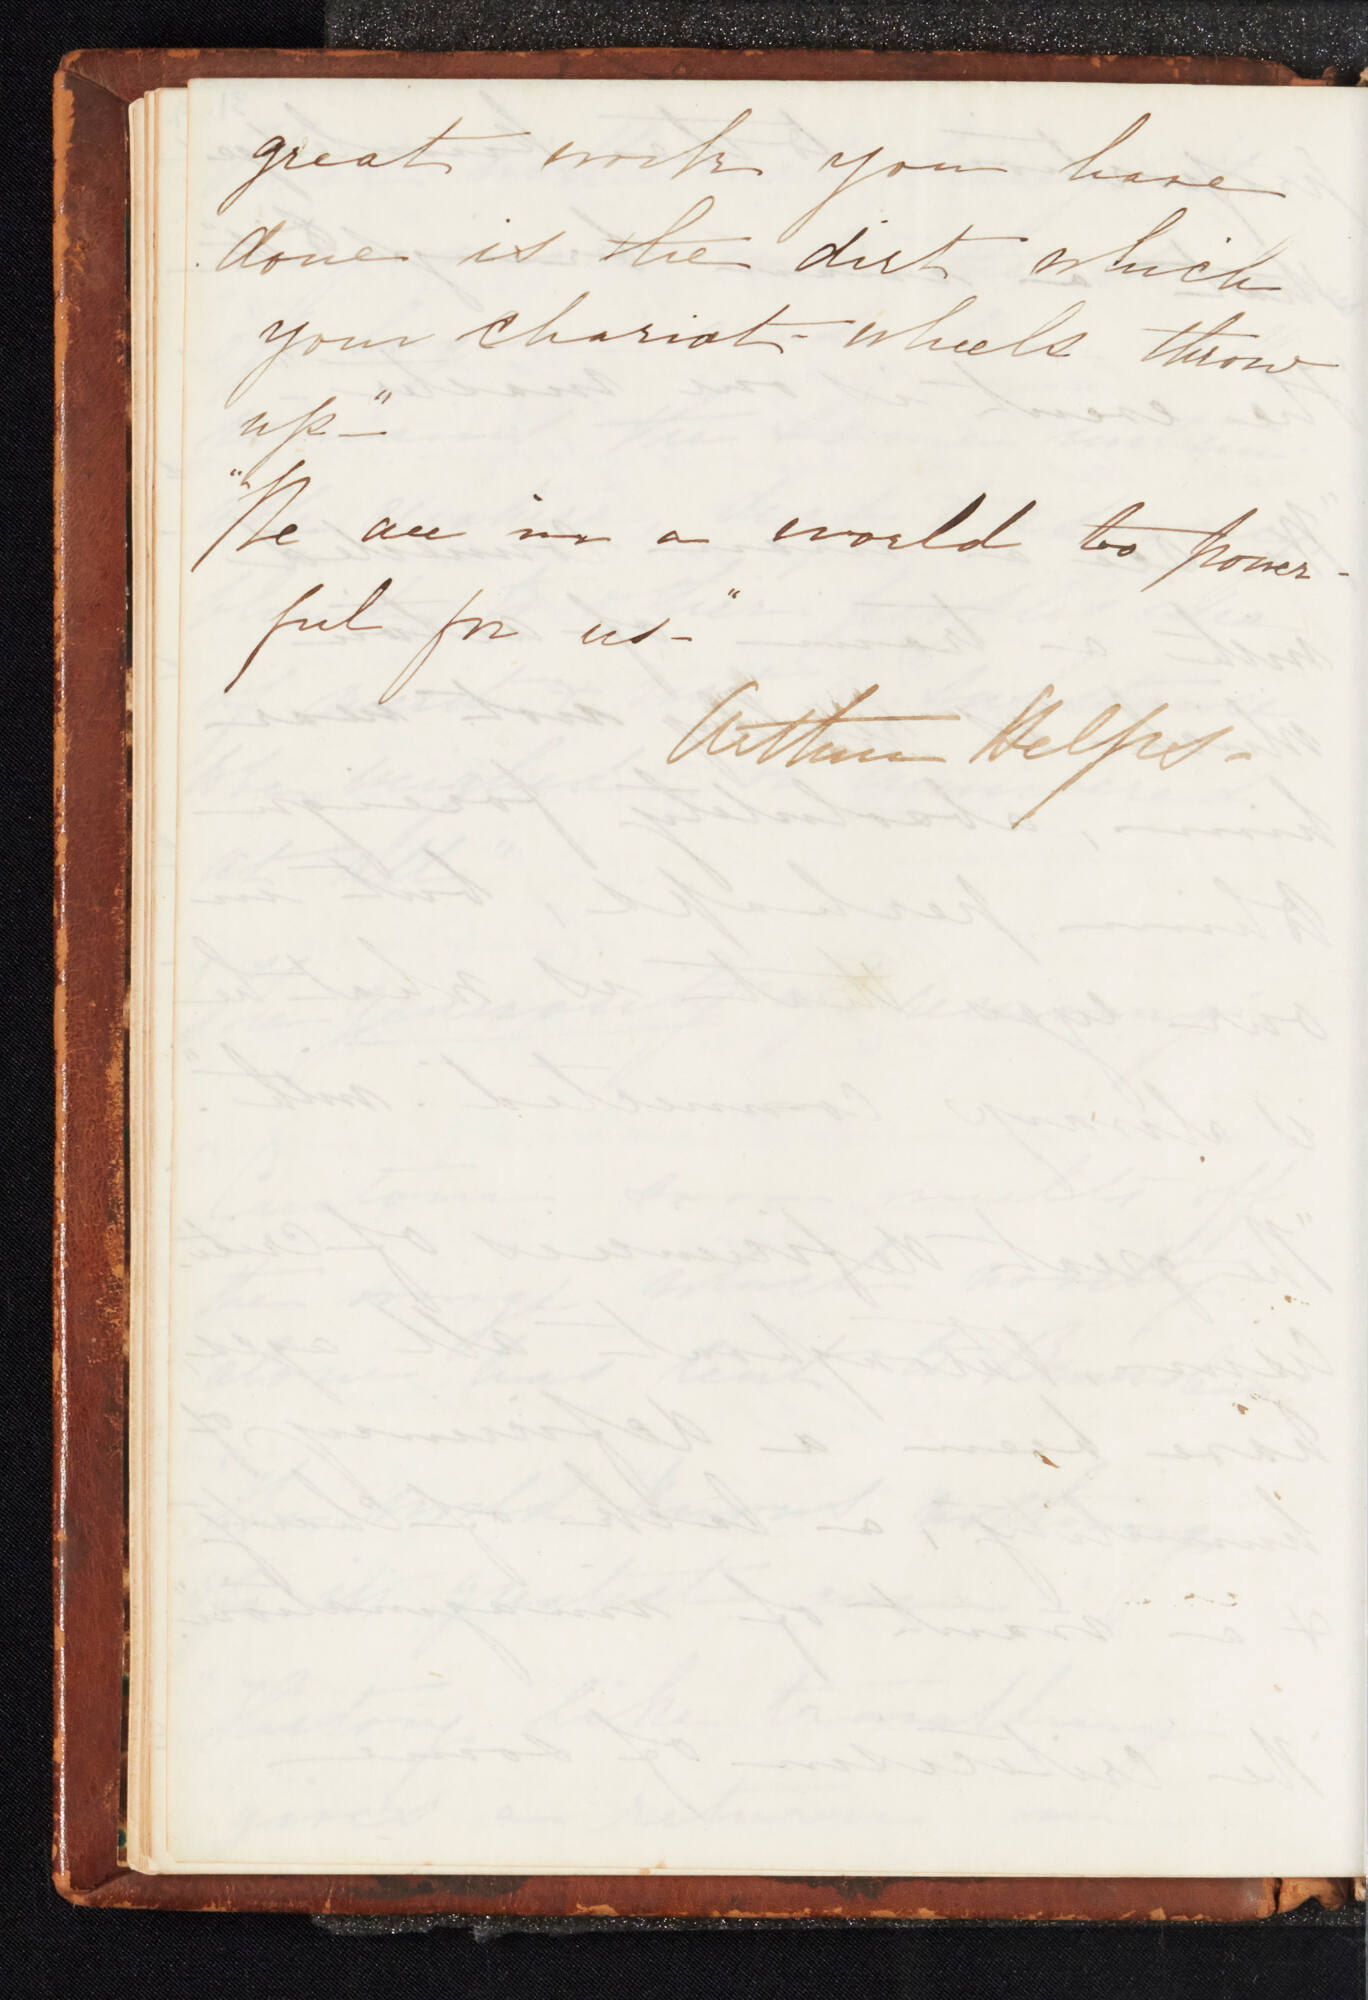 great work you have
done is the dirt which
your chariot-wheels throw
up-"
"We are in a world to power-
ful for us-"
Arthur Helps-